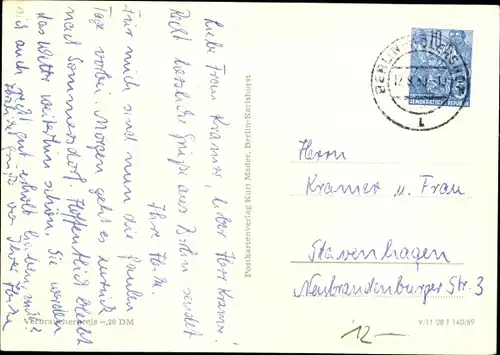 Liebe Frau Kramer, lieber Herr Kramer!
Recht herzliche Grüße aus Berlin sendet
Ihre
Für mich sind nun die
Tage vorbei. Morgen geht es zurück
nach Sommersdorf. Hoffentlich bleibt
das Wetter weiterhin schön. Sie werden
sich auch recht gut erholt haben
Herzliche Grüße von Ihrer
Postkartenverlag Kurt Mader, Berlin-Karlshorst
Verbraucherpreis -,20 DM
BERLIN
1
10
DEUTSCHE
DEMOKRATISCHE REPUBLIK
Herrn
Kramer u. Frau
Stavenhagen
Neubrandenburger Str. 3
12,-
V 11 28 I 140/59